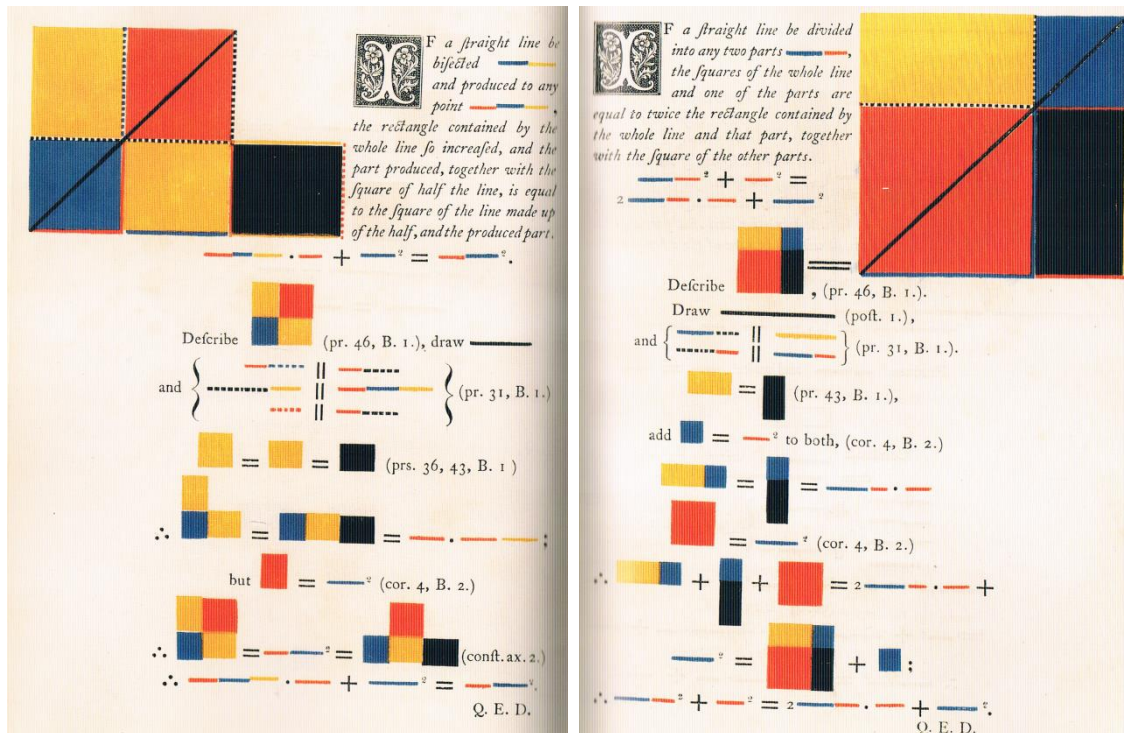 IF a ſtraight line be
biſected
and produced to any
point ,
the rectangle contained by the
whole line ſo increaſed, and the
part produced, together with the
ſquare of half the line, is equal
to the ſquare of the line made up
of the half, and the produced part.
· + ² = ².
Deſcribe (pr. 46, B. 1.), draw
and { || || || } (pr. 31, B. 1.)
= = (prs. 36, 43, B. 1 )
∴ = = · ;
but = ² (cor. 4, B. 2.)
∴ = ² = (conſt. ax. 2.)
∴ · + ² = ².
Q. E. D.
IF a ſtraight line be divided
into any two parts ,
the ſquares of the whole line
and one of the parts are
equal to twice the rectangle contained by
the whole line and that part, together
with the ſquare of the other parts.
² + ² =
2 · + ²
Deſcribe , (pr. 46, B. 1.).
Draw (poſt. 1.),
and { || || } (pr. 31, B. 1.).
= (pr. 43, B. 1.),
add = ² to both, (cor. 4, B. 2.)
= = ·
= ² (cor. 4, B. 2.)
∴ + + = 2 · +
² = + ;
∴ ² + ² = 2 · + ².
Q. E. D.